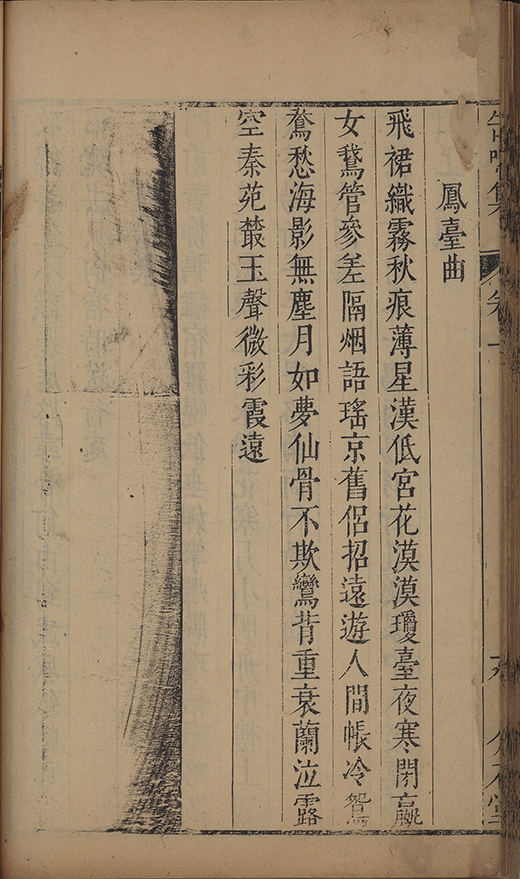 鳳臺曲
飛裙織霧秋痕薄星漢低宮花漠漠瓊臺夜寒閉嬴
女鵞管參差隔烟語瑤京舊侶招遠遊人間帳冷鴛
鴦愁海影無塵月如夢仙骨不欺鸞背重衰蘭泣露
空秦苑藂玉聲微彩霞遠